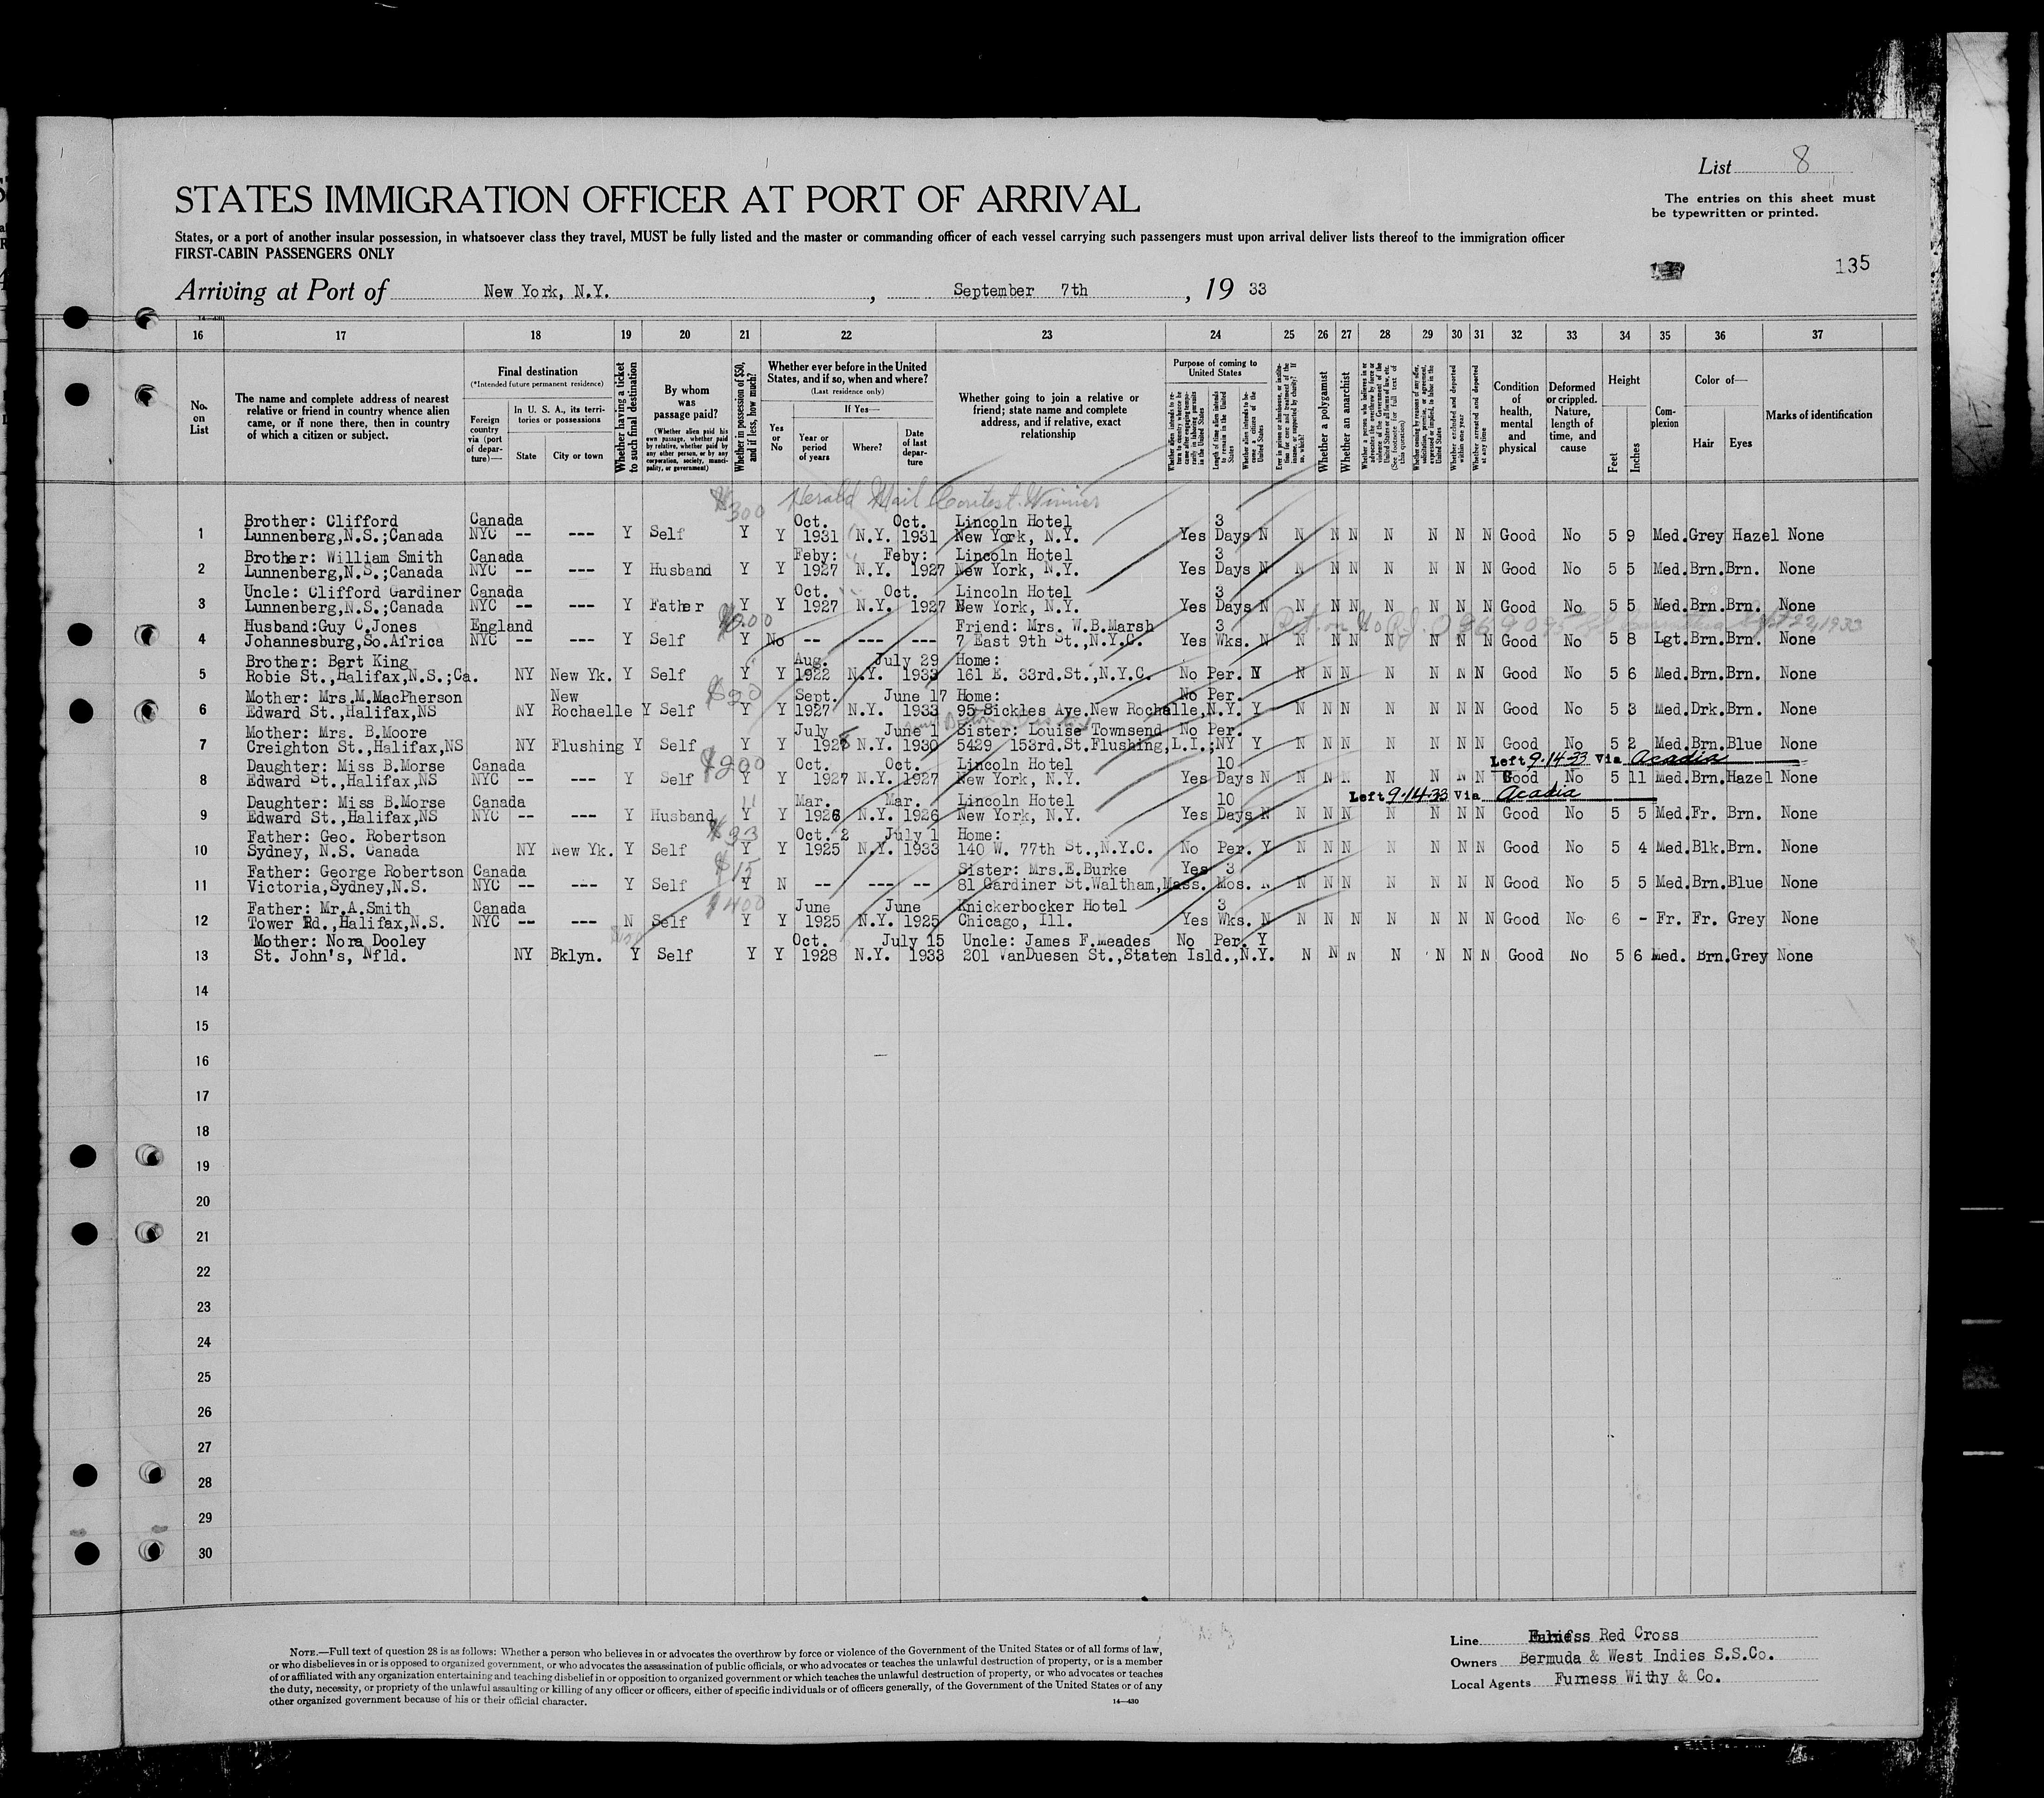 List 8
STATES IMMIGRATION OFFICER AT PORT OF ARRIVAL
The entries on this sheet must
be typewritten or printed.
States, or a port of another insular possession, in whatsoever class they travel, MUST be fully listed and the master or commanding officer of each vessel carrying such passengers must upon arrival deliver lists thereof to the immigration officer
FIRST-CABIN PASSENGERS ONLY
135
Arriving at Port of New York, N.Y. , September 7th , 19 33
16 17 18 19 20 21 22 23 24 25 26 27 28 29 30 31 32 33 34 35 36 37
No. on List
The name and complete address of nearest relative or friend in country whence alien came, or if none there, then in country of which a citizen or subject.
Final destination
(*Intended future permanent residence)
Foreign country via (port of departure)—
In U. S. A., its territories or possessions
State
City or town
Whether having a ticket to such final destination
By whom was passage paid?
(Whether alien paid his own passage, whether paid by relative, whether paid by any other person, or by any corporation, society, municipality, or government)
Whether in possession of $50, and if less, how much?
Whether ever before in the United States, and if so, when and where?
(Last residence only)
Yes or No
If Yes—
Year or period of years
Where?
Date of last departure
Whether going to join a relative or friend; state name and complete address, and if relative, exact relationship
Purpose of coming to United States
Length of time alien intends to remain in the United States
Whether alien intends to become a citizen of the United States
Whether a polygamist
Whether an anarchist
Whether excluded and deported within one year
Whether arrested and deported at any time
Condition of health, mental and physical
Deformed or crippled. Nature, length of time, and cause
Height
Feet
Inches
Complexion
Color of—
Hair
Eyes
Marks of identification
$300 Herald Mail Contest Winner
Brother: Clifford Canada Oct. Oct. Lincoln Hotel 3
1 Lunnenberg,N.S.;Canada NYC -- --- Y Self Y Y 1931 N.Y. 1931 New York, N.Y. Yes Days N N N N N N N N Good No 5 9 Med.Grey Hazel None
Brother: William Smith Canada Feby: Feby: Lincoln Hotel 3
2 Lunnenberg,N.S.;Canada NYC -- --- Y Husband Y Y 1927 N.Y. 1927 New York, N.Y. Yes Days N N N N N N N N Good No 5 5 Med.Brn.Brn. None
Uncle: Clifford Gardiner Canada Oct. Oct. Lincoln Hotel 3
3 Lunnenberg,N.S.;Canada NYC -- --- Y Father Y Y 1927 N.Y. 1927 New York, N.Y. Yes Days N N N N N N N N Good No 5 5 Med.Brn.Brn. None
Husband:Guy C.Jones England Friend: Mrs. W.B.Marsh 3
4 Johannesburg,So.Africa NYC -- --- Y Self Y No -- --- --- 7 East 9th St.,N.Y.C. Yes Wks. N N N N N N N N Good No 5 8 Lgt.Brn.Brn. None
Brother: Bert King Aug. July 29 Home:
5 Robie St.,Halifax,N.S.;Ca. NY New Yk. Y Self Y Y 1922 N.Y. 1933 161 E. 33rd.St.,N.Y.C. No Per. Y N N N N N N N Good No 5 6 Med.Brn.Brn. None
Mother: Mrs.M.MacPherson New $20 Sept. June 17 Home: No Per.
6 Edward St.,Halifax,NS NY Rochaelle Y Self Y Y 1927 N.Y. 1933 95 Sickles Ave.New Rochalle,N.Y. Y N N N N N N N Good No 5 3 Med.Drk.Brn. None
Mother: Mrs. B.Moore July June 1 Sister: Louise Townsend No Per.
7 Creighton St.,Halifax,NS NY Flushing Y Self Y Y 1928 N.Y. 1930 5429 153rd.St.Flushing,L.I.;NY Y N N N N N N N Good No 5 2 Med.Brn.Blue None
Daughter: Miss B.Morse Canada $200 Oct. Oct. Lincoln Hotel 10 Left 9-14-33 Via Acadia
8 Edward St.,Halifax,NS NYC -- --- Y Self Y Y 1927 N.Y. 1927 New York, N.Y. Yes Days N N N N N N N N Good No 5 11 Med.Brn.Hazel None
Daughter: Miss B.Morse Canada " Mar. Mar. Lincoln Hotel 10 Left 9-14-33 Via Acadia
9 Edward St.,Halifax,NS NYC -- --- Y Husband Y Y 1926 N.Y. 1926 New York, N.Y. Yes Days N N N N N N N N Good No 5 5 Med.Fr. Brn. None
Father: Geo. Robertson $93 Oct. 2 July 1 Home:
10 Sydney, N.S. Canada NY New Yk. Y Self Y Y 1925 N.Y. 1933 140 W. 77th St.,N.Y.C. No Per. Y N N N N N N N Good No 5 4 Med.Blk.Brn. None
Father: George Robertson Canada $15 Sister: Mrs.E.Burke Yes 3
11 Victoria,Sydney,N.S. NYC -- --- Y Self Y N -- --- -- 81 Gardiner St.Waltham,Mass. Mos. N N N N N N N N Good No 5 5 Med.Brn.Blue None
Father: Mr.A.Smith Canada $400 June June Knickerbocker Hotel 3
12 Tower Rd.,Halifax,N.S. NYC -- --- N Self Y Y 1925 N.Y. 1925 Chicago, Ill. Yes Wks. N N N N N N N N Good No 6 - Fr. Fr. Grey None
Mother: Nora Dooley Oct. July 15 Uncle: James F.Meades No Per. Y
13 St. John's, Nfld. NY Bklyn. Y Self Y Y 1928 N.Y. 1933 201 VanDuesen St.,Staten Isld.,N.Y. N N N N N N N Good No 5 6 Med. Brn.Grey None
14
15
16
17
18
19
20
21
22
23
24
25
26
27
28
29
30
NOTE.—Full text of question 28 is as follows: Whether a person who believes in or advocates the overthrow by force or violence of the Government of the United States or of all forms of law,
or who disbelieves in or is opposed to organized government, or who advocates the assassination of public officials, or who advocates or teaches the unlawful destruction of property, or is a member
of or affiliated with any organization entertaining and teaching disbelief in or opposition to organized government or which teaches the unlawful destruction of property, or who advocates or teaches
the duty, necessity, or propriety of the unlawful assaulting or killing of any officer or officers, either of specific individuals or of officers generally, of the Government of the United States or of any
other organized government because of his or their official character.
14—430
Line Furness Red Cross
Owners Bermuda & West Indies S.S.Co.
Local Agents Furness Withy & Co.